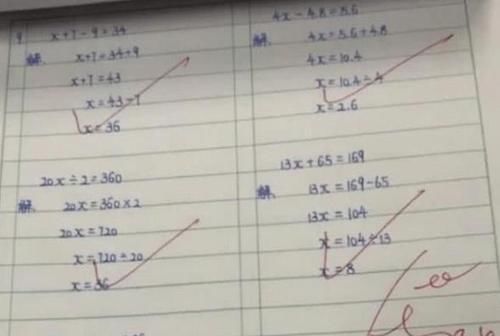 9 x+7-9=34
解. x+7=34+9
x+7=43
x=43-7
x=36
4x-4.8=5.6
解. 4x=5.6+4.8
4x=10.4
x=10.4÷4
x=2.6
20x÷2=360
解. 20x=360×2
20x=720
x=720÷20
x=36
13x+65=169
解. 13x=169-65
13x=104
x=104÷13
x=8